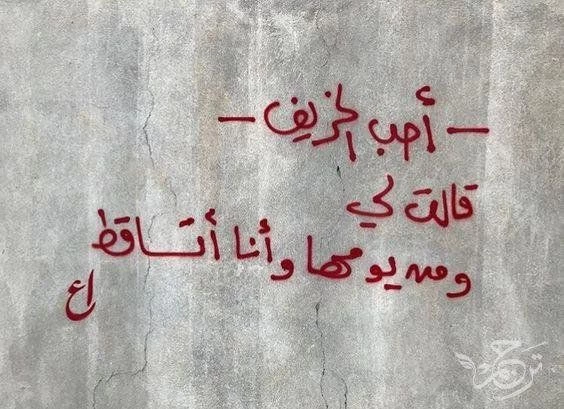 – أحب الخريف –
قالت لي
ومن يومها وأنا أتساقط
اع